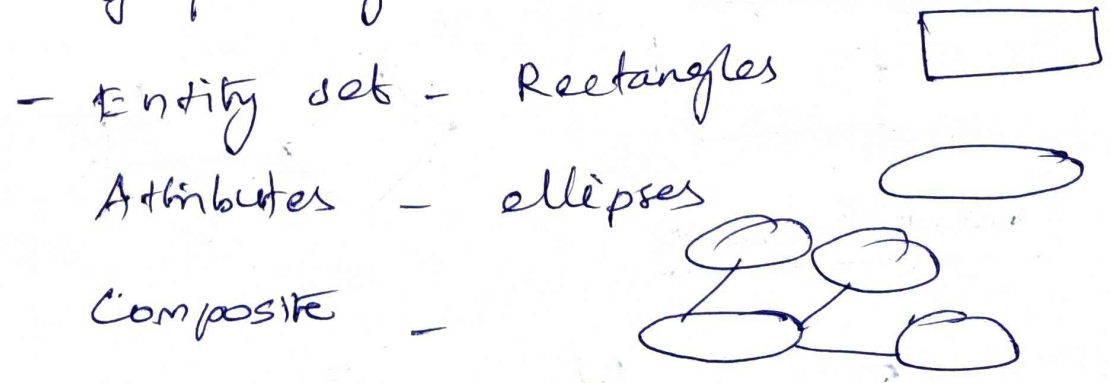 - Entity set - Rectangles
Attributes - ellipses
Composite -